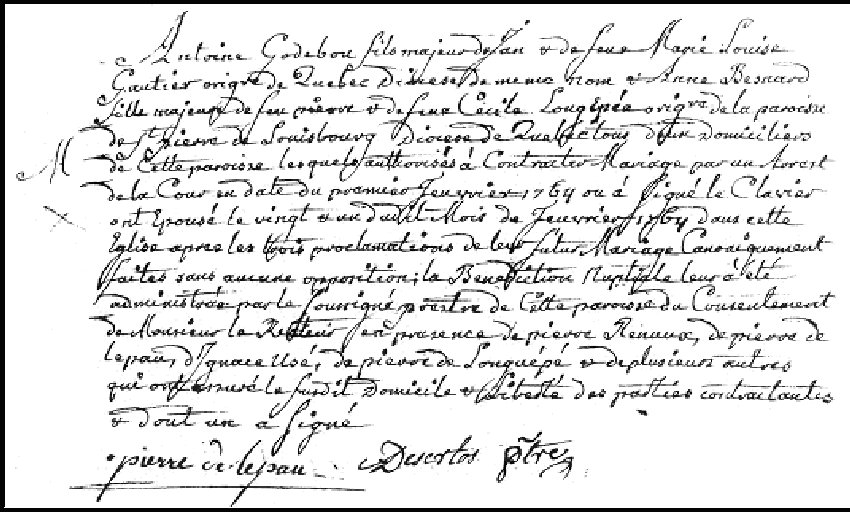 Antoine Godebou fils majeur de Jân & de feue Marie Louise
Gautier origre de Quebec Diocese de meme nom & Anne Besnard
fille majeure de feu pierre & de feue Cécile Longépée origre de la paroisse
de St pierre de Louisbourg Diocese de Quebec tous deux Domiciliers
M de Cette paroisse lesquels authorisés à Contracter Mariage par un Arrest
de la Cour en date du premier Jeuvrier 1764 ou à Signé le Clavier
ont Epousé le vingt & un dudit Mois de Jeuvrier 1764 dans cette
Eglise apres les trois proclamations de leur futur Mariage Canoniquement
faites sans aucune opposition; la Benediction Nuptiale leur à été
administrée par le Soussigné prestre de Cette paroisse du Consentement
de Monsieur le Recteur en presence de pierre Renaux, de pierre de
lepau, d'Ignace Usé, de pierre de Longuépé & de plusieurs autres
qui ont assuré le susdit Domicile & liberté des parties contractantes
& dont un a Signé
pierre de lepau Desertos ptre